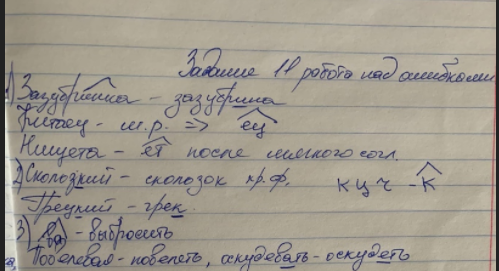 Задание 11 работа над ошибками
1) Зазубренка - зазубрина
Китаец - м.р. => ец
Нищета - ет после мягкого согл.
2) Сколозкий - сколозок кр.ф. к ц ч - к
Грецкий - грек
3) ва - выбросить
Повелевая - повелеть, оскудевать - оскудеть